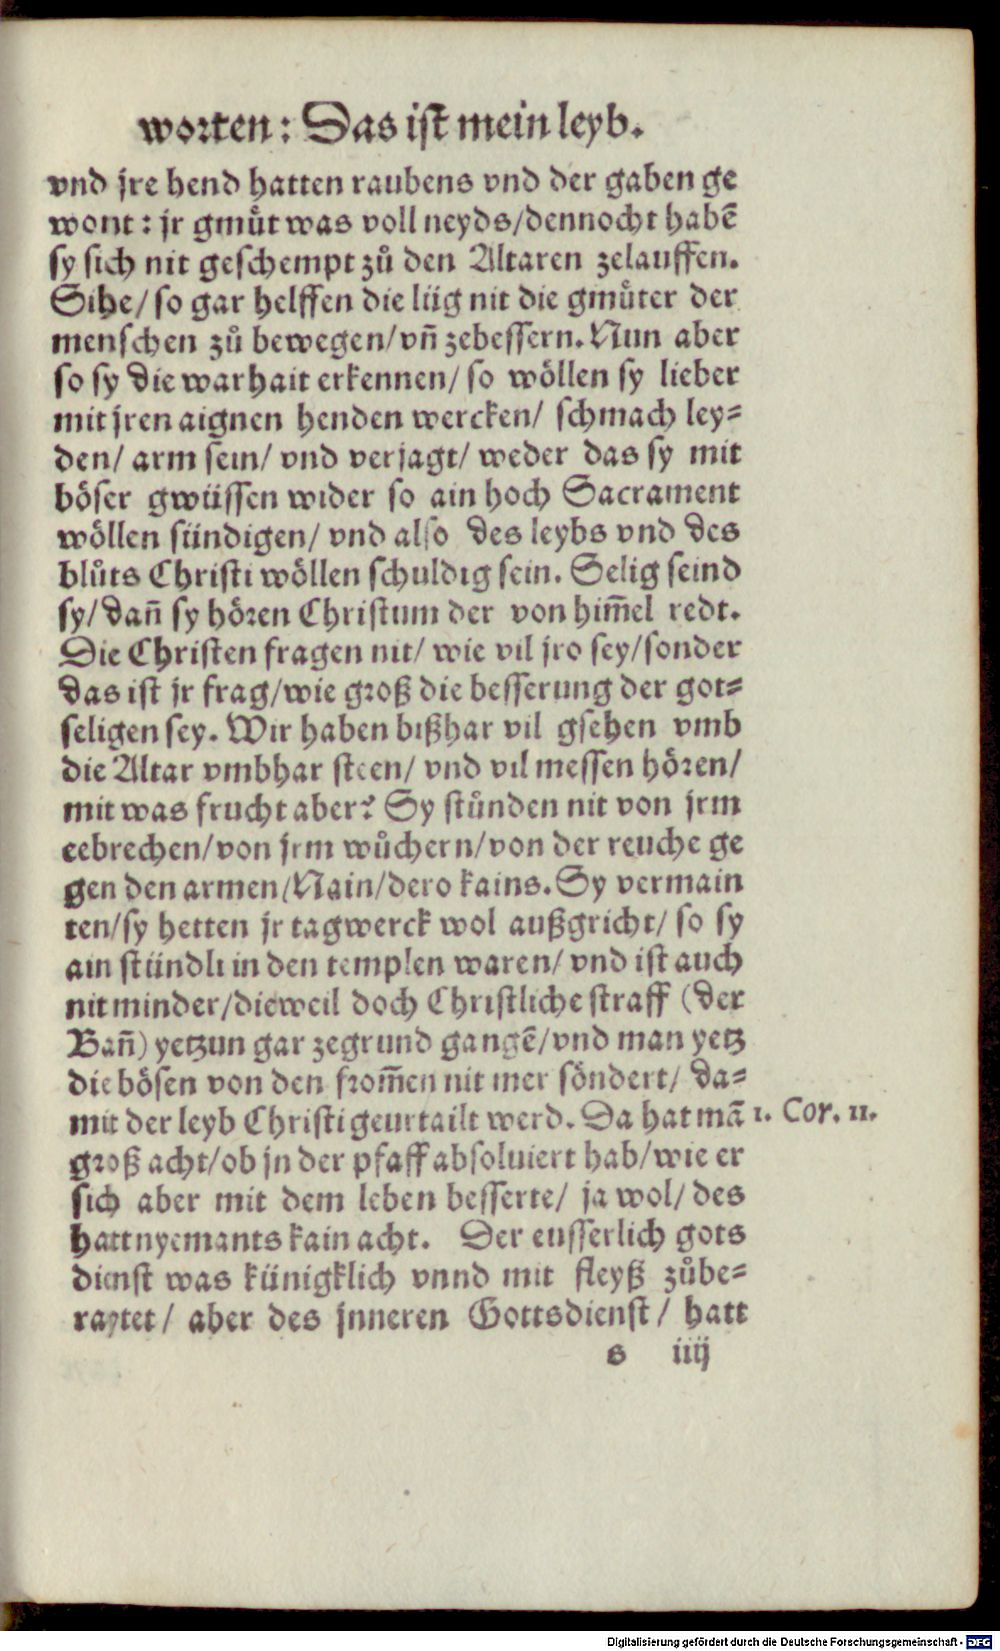 worten: Das ist mein leyb.
vnd jre hend hatten raubens vnd der gaben ge
wont: jr gmuͤt was voll neyds/dennocht habẽ
sy sich nit geschempt zuͦ den Altaren zelauffen.
Sihe/ so gar helffen die lüg nit die gmuͤter der
menschen zuͦ bewegen/vñ zebessern. Nun aber
so sy die warhait erkennen/ so wöllen sy lieber
mit jren aignen henden wercken/ schmach ley=
den/ arm sein/ vnd verjagt/ weder das sy mit
böser gwüssen wider so ain hoch Sacrament
wöllen sündigen/ vnd also des leybs vnd des
bluͦts Christi wöllen schuldig sein. Selig seind
sy/dañ sy hören Christum der von him̃el redt.
Die Christen fragen nit/ wie vil jro sey/sonder
das ist jr frag/wie groß die besserung der got=
seligen sey. Wir haben bißhar vil gsehen vmb
die Altar vmbhar steen/ vnd vil messen hören/
mit was frucht aber? Sy stuͦnden nit von jrm
eebrechen/von jrm wuͦchern/von der reuche ge
gen den armen/Nain/dero kains. Sy vermain
ten/sy hetten jr tagwerck wol außgricht/ so sy
ain stündli in den templen waren/ vnd ist auch
nit minder/dieweil doch Christliche straff (der
Bañ) yetzun gar zegrund gangẽ/vnd man yetz
die bösen von den from̃en nit mer söndert/ da=
mit der leyb Christi geurtailt werd. Da hat mã 1. Cor. 11.
groß acht/ob jn der pfaff absoluiert hab/wie er
sich aber mit dem leben besserte/ ja wol/ des
hatt nyemants kain acht. Der eusserlich gots
dienst was künigklich vnnd mit fleyß zuͦbe=
raytet/ aber des jnneren Gottsdienst/ hatt
s iiij
Digitalisierung gefördert durch die Deutsche Forschungsgemeinschaft - DFG